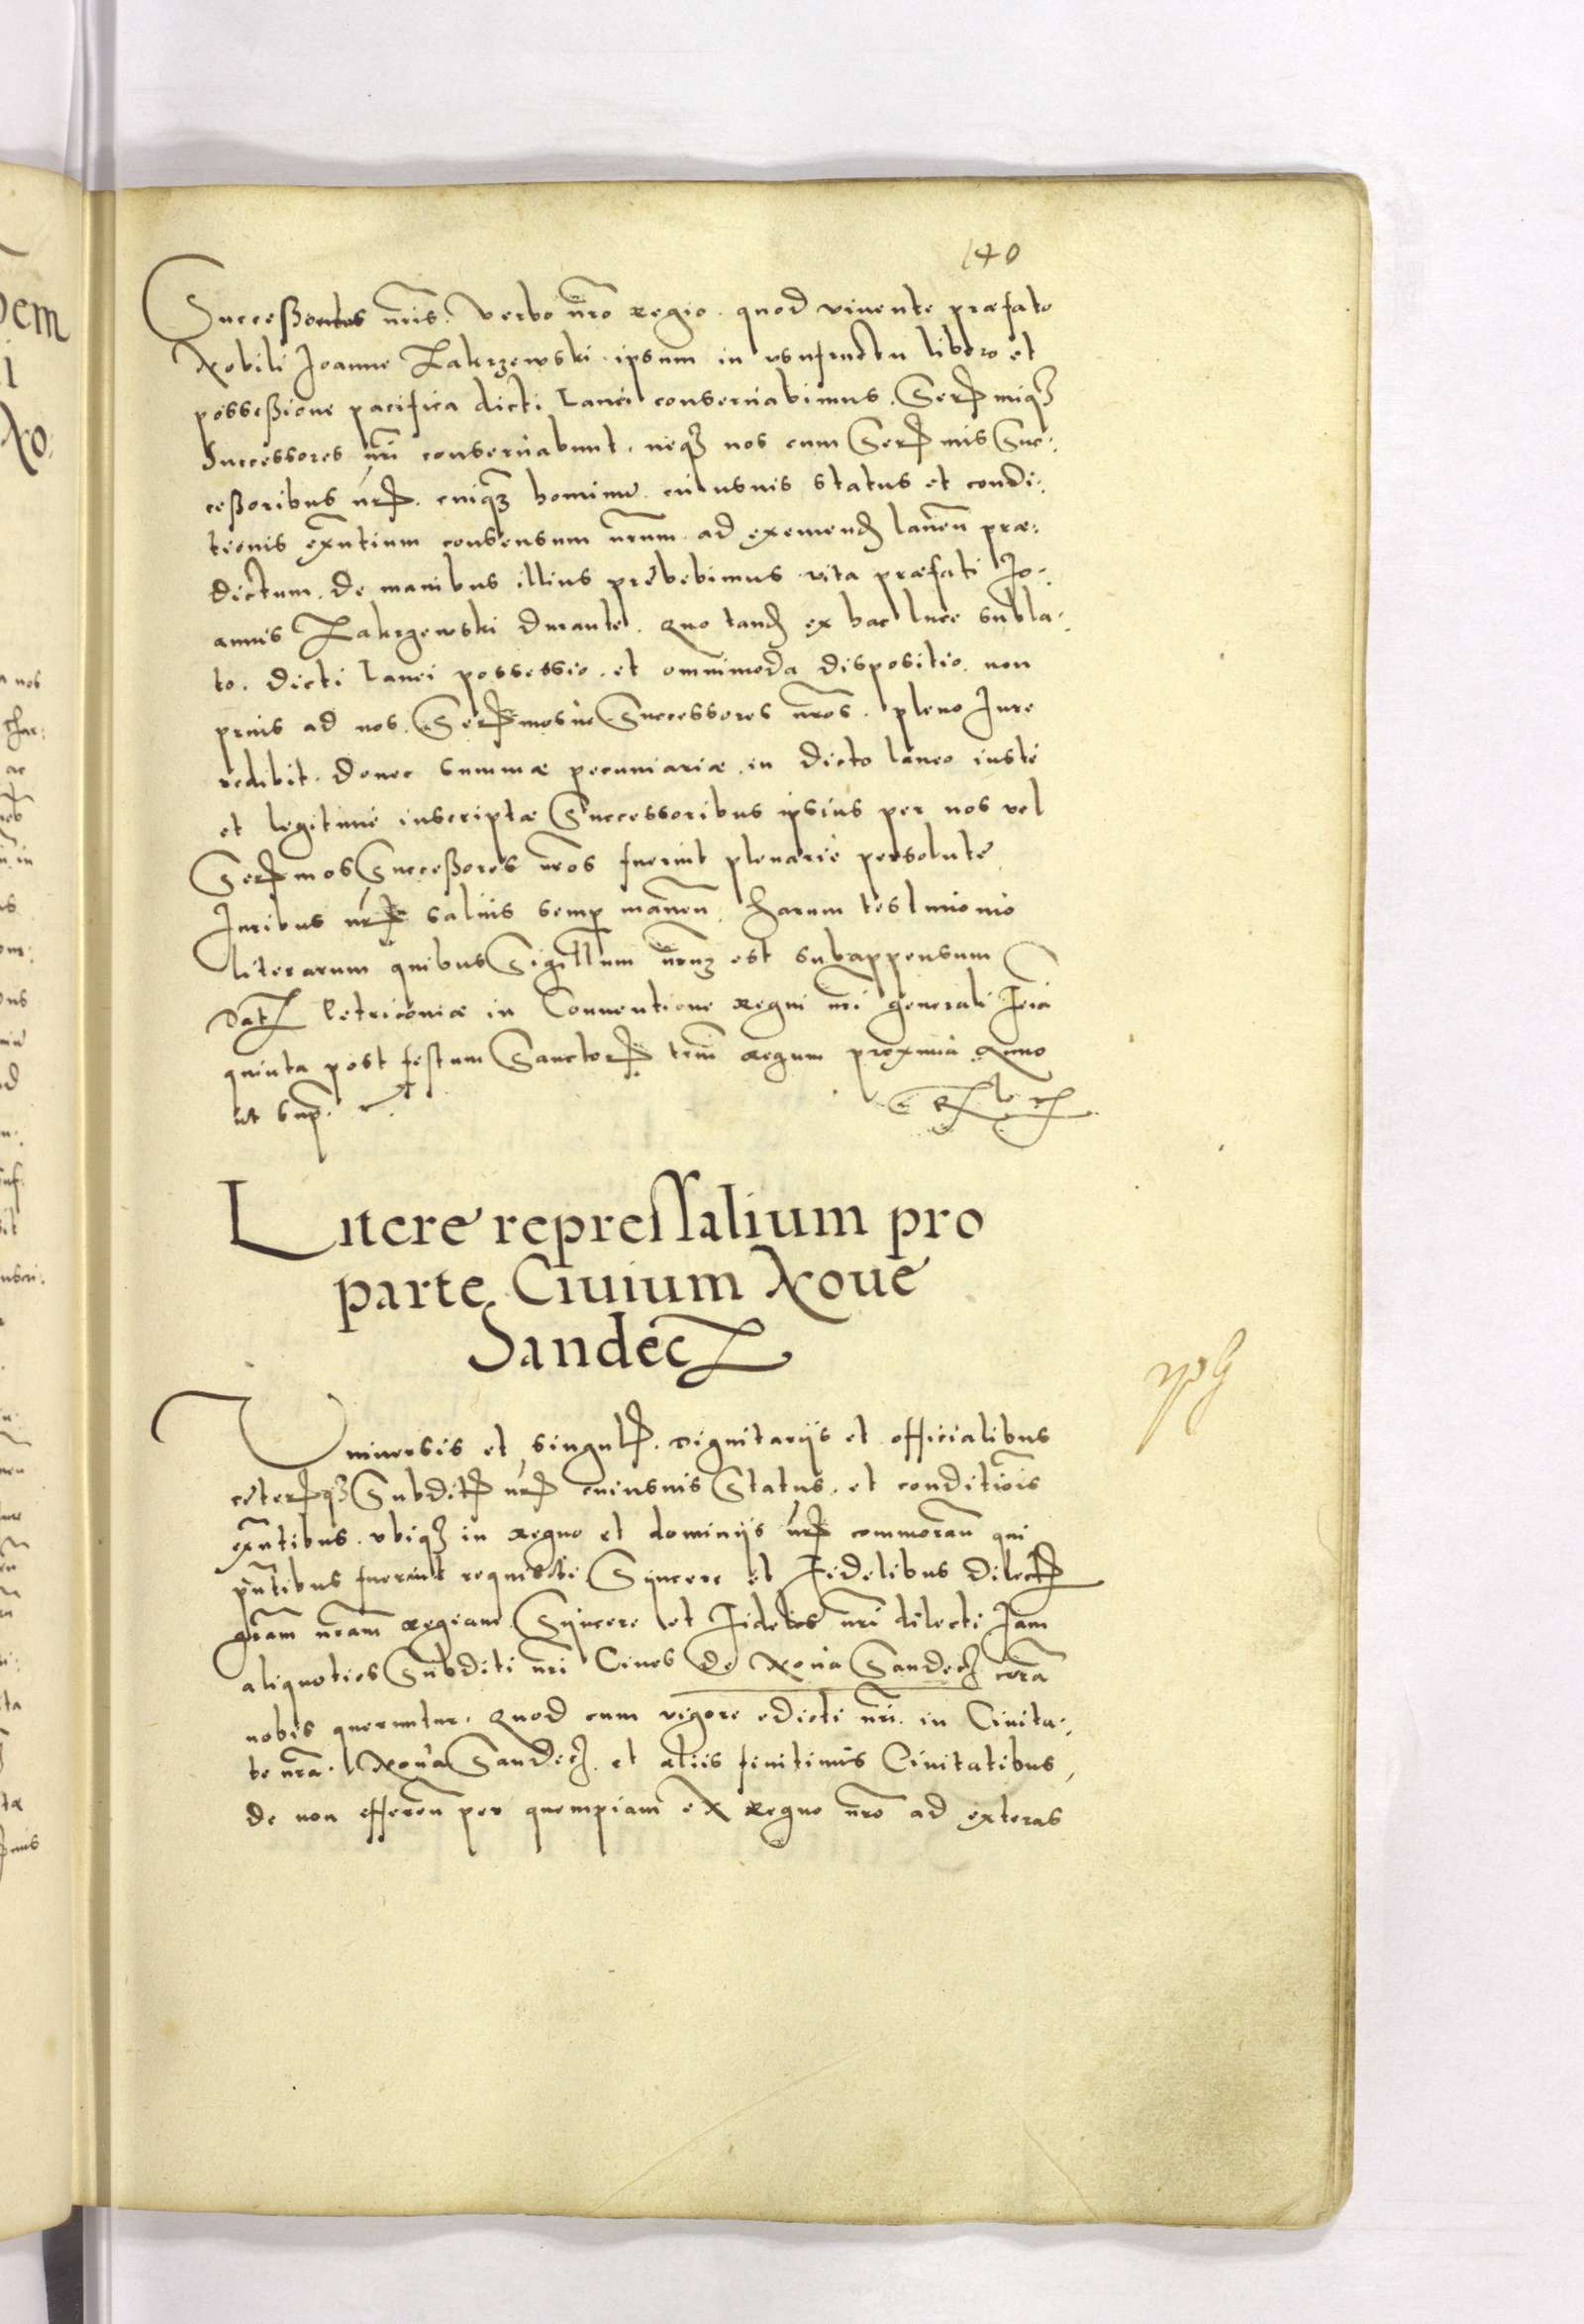 140
Successoribus nris. Verbo nro regio. quod vivente præfato
Nobili Joanne Zakrzewski. ipsum in usufructu libero et
possessione pacifica dicti lanei conservabimus. Sermiq3
Successores nri conservabunt. neq3 nos cum Sermis Suc:
cessoribus nris. cuiq3 hominum cuiusvis status et condi:
tionis exntium consensum nrum ad exemend laneum præ:
dictum. de manibus illius prebebimus. vita præfati Jo:
annis Zakrzewski durante. Quo tand ex hac luce subla:
to. dicti lanei possessio. et omnimoda dispositio. non
prius ad nos. Sermosve Successores nros. pleno Jure
redibit. donec summæ pecuniariæ in dicto laneo iuste
et legitime inscriptæ Successoribus ipsius per nos vel
Sermos Successores nros fuerint plenarie persolute
Juribus nris salvis semp manen. harum testimonio
literarum quibus Sigillum nrum est subappensum
Dat Petricoviæ in Conventione regni nri generali feria
quinta post festum Sanctor trium regum proxima Anno
ut sup.
Litere repressalium pro
parte Civium Nove
Sandecz
Universis et singulis. Dignitariis et officialibus
ceterisq3 Subditis nris cuiusvis Status. et conditiois
exntibus. ubiq3 in regno et dominiis nris commoran qui
pntibus fuerint requisiti Syncere et Fidelibus Dilectis
gram nram regiam. Syncere et Fideles nri dilecti. Jam
aliquoties Subditi nri Cives de Nova Sandecz cora
nobis queruntur. Quod cum vigore edicti nri. in Civita:
te nra. Nova Sandecz. et aliis finitimis Civitatibus,
de non efferen per quempiam ex regno nro ad exteras